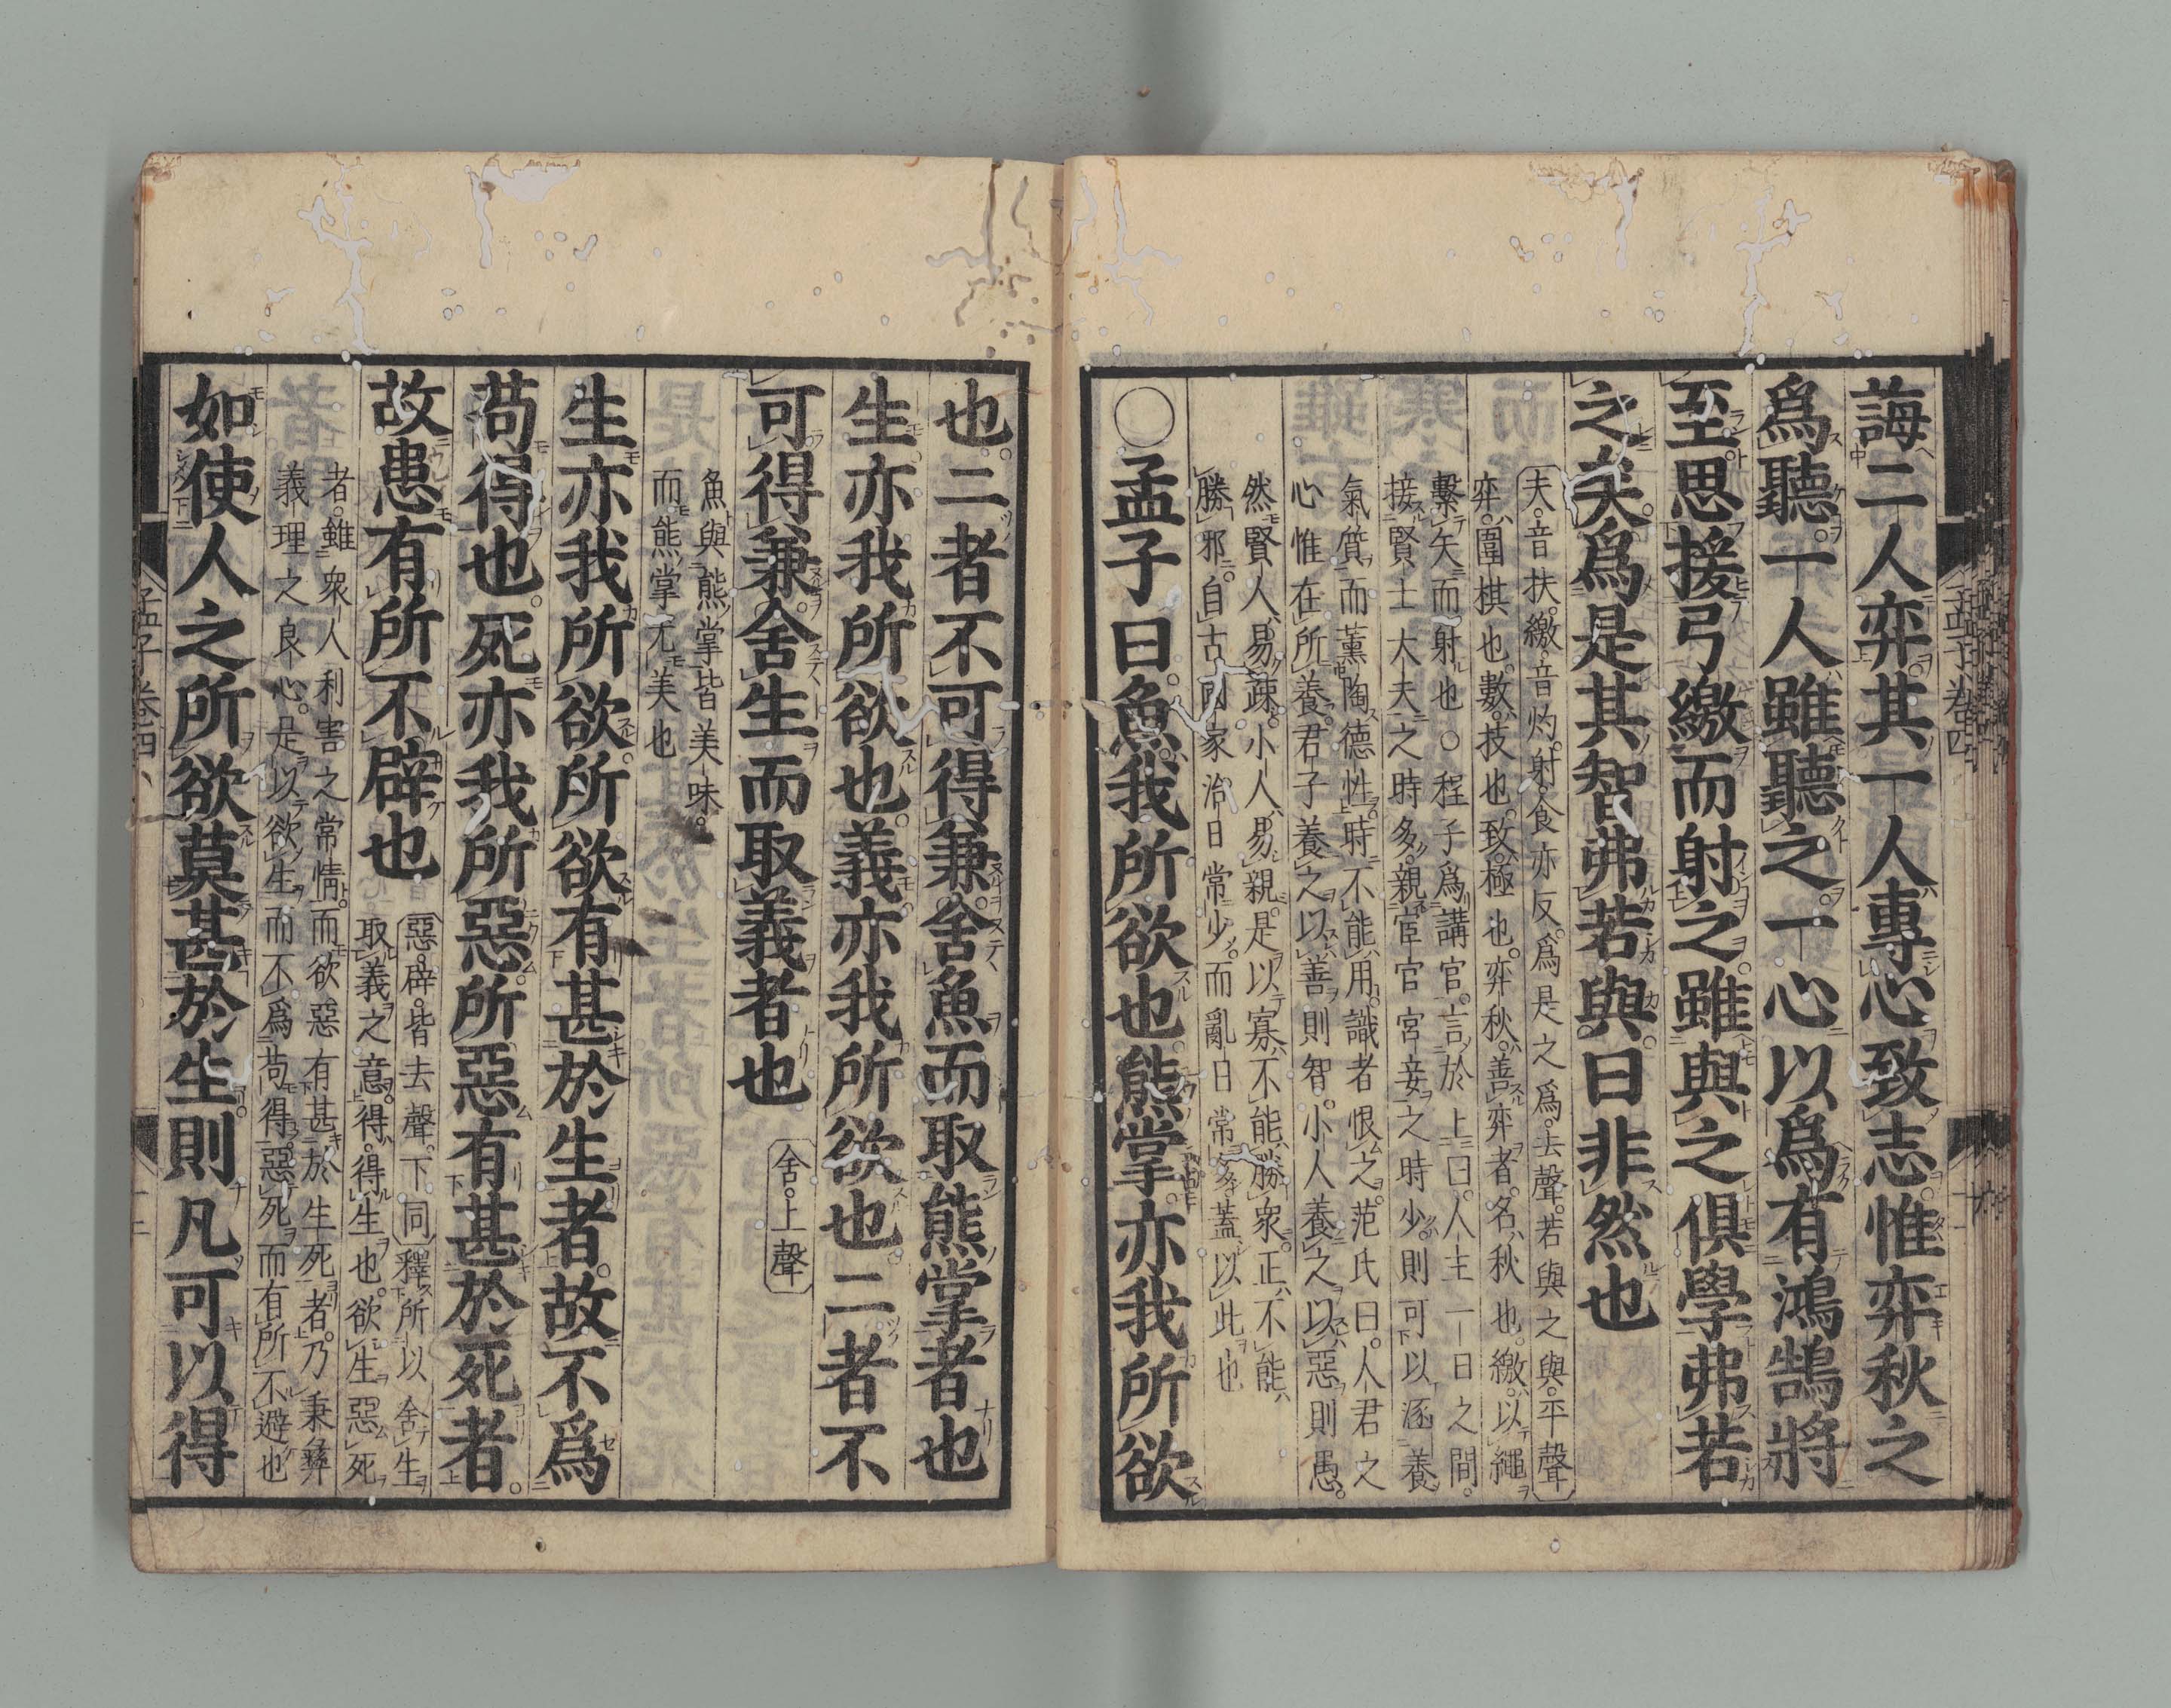 誨二人弈其一人專心致志惟弈秋之
爲聽一人雖聽之一心以爲有鴻鵠將
至思援弓繳而射之雖與之俱學弗若
之矣爲是其智弗若與曰非然也
夫音扶繳音灼射食亦反爲是之爲去聲若與之與平聲
弈圍棋也數技也致極也弈秋善弈者名秋也繳以繩
繫矢而射也○程子爲講官言於上曰人主一日之間
接賢士大夫之時多親宦官宮妾之時少則可以涵養
氣質而薰陶德性時不能用識者恨之范氏曰人君之
心惟在所養君子養之以善則智小人養之以惡則愚
然賢人易疎小人易親是以寡不能勝衆正不能
勝邪自古國家治日常少而亂日常多蓋以此也
○孟子曰魚我所欲也熊掌亦我所欲
也二者不可得兼舍魚而取熊掌者也
生亦我所欲也義亦我所欲也二者不
可得兼舍生而取義者也
舍上聲
魚與熊掌皆美味
而熊掌尤美也
生亦我所欲所欲有甚於生者故不爲
苟得也死亦我所惡所惡有甚於死者
故患有所不辟也
惡辟皆去聲下同 釋所以舍生
取義之意得得生也欲生惡死
者雖衆人利害之常情而欲惡有甚於生死者乃秉彝
義理之良心是以欲生而不爲苟得惡死而有所不避也
如使人之所欲莫甚於生則凡可以得
孟子卷四